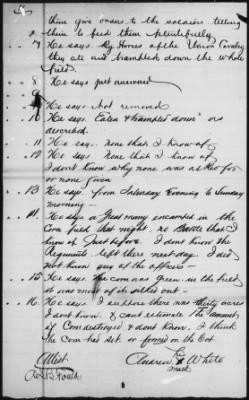 them give orders to the soldiers telling
them to feed them plentifully
7 He says. By Horses of the Union Cavalry
they ate and trampled down the whole
field.
8 He says just answered
9
He says. Not removed
10 He says. Eaten & trampled down as
described.
11 He says. None that I know of
12 He says None that I know of
I dont know why none was asked for
or none given
13 He says. from Saturday Evening to Sunday
morning
14 He says a great many encamped in the
Corn field that night. no Battle that I
know of Just before. I dont know the
Regiments. left there next day. I did
not know any of the officers
15 He says. The corn was green in the field
it was most of it silked out
16 He says. I suppose there was thirty acres
I dont know, & cant estimate the amount
of Corn destroyed & dont know. I think
the Corn had set or formed on the Cob
Attest Andrew his x mark White